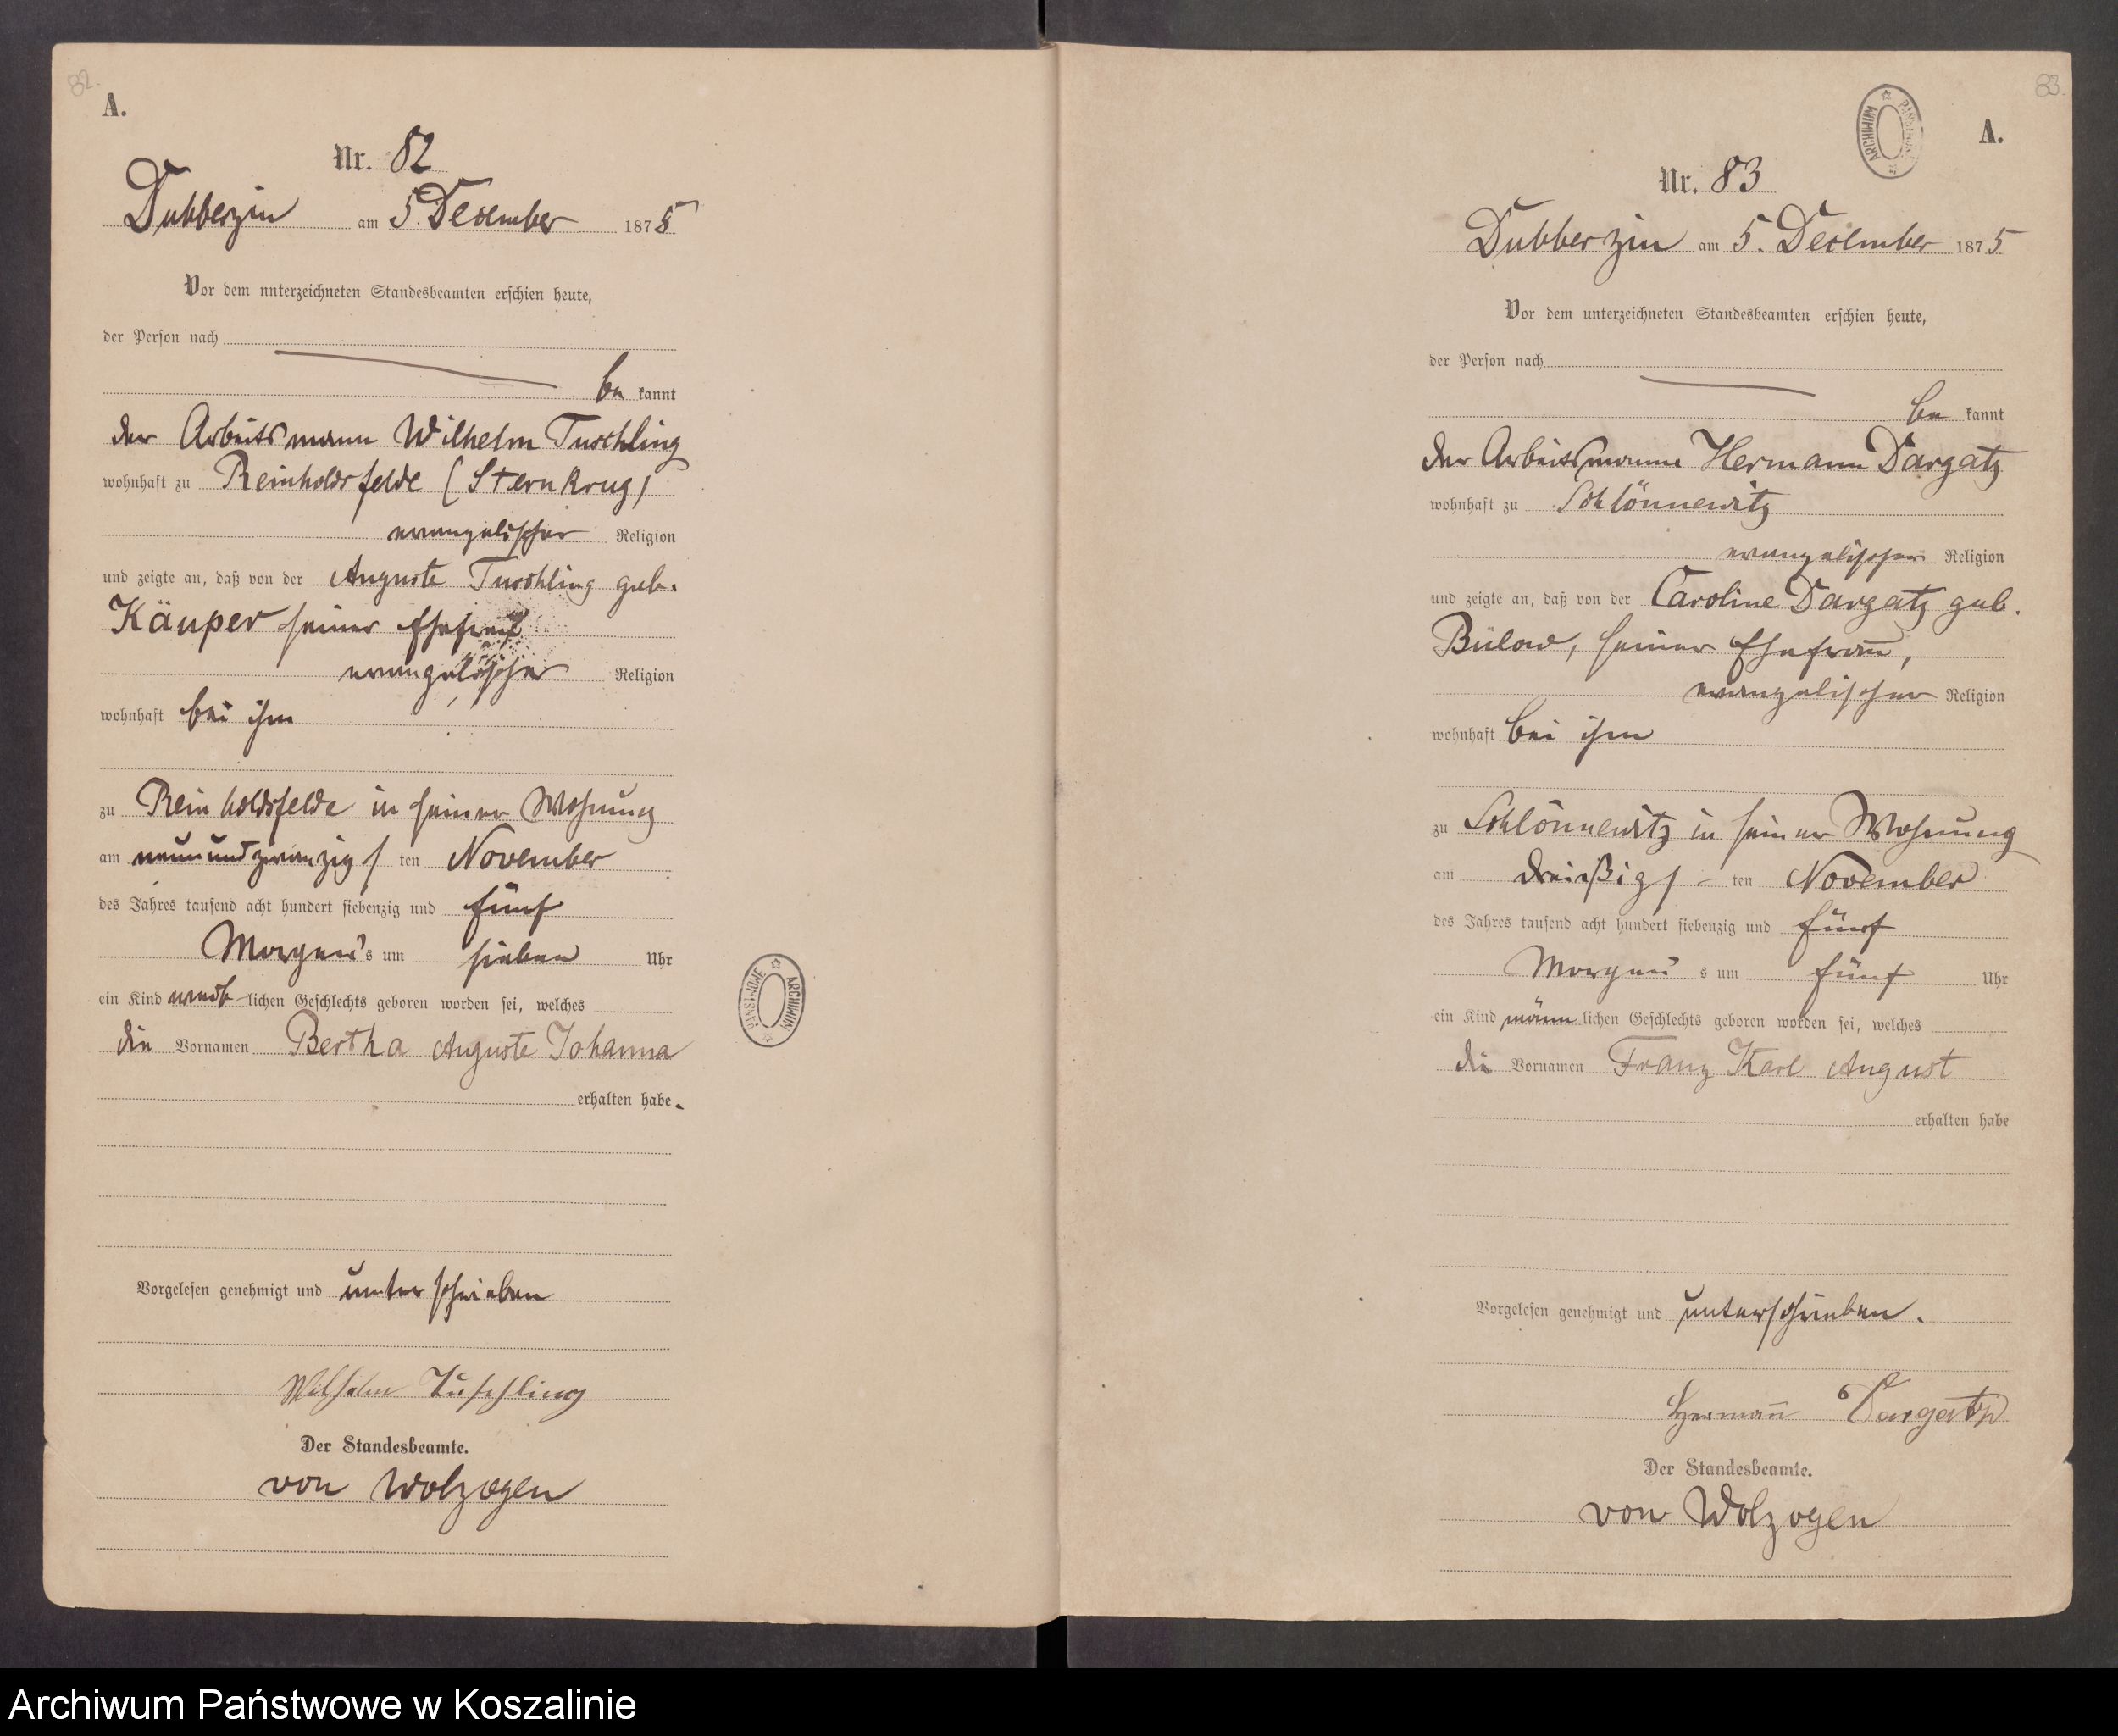 82.
A.
Nr. 82
Dubberzin am 5. December 1875
Vor dem nnterzeichneten Standesbeamten erschien heute,
der Person nach
be kannt
der Arbeitsmann Wilhelm Tuschling
wohnhaft zu Reinholdsfelde (Sternkrug)
evangelischer Religion
und zeigte an, daß von der Auguste Tuschling geb.
Käuper seiner Ehefrau
evangelischer Religion
wohnhaft bei ihm
zu Reinholdsfelde in seiner Wohnung
am neunundzwanzigs ten November
des Jahres tausend acht hundert siebenzig und fünf
Morgens um sieben Uhr
ein Kind weib lichen Geschlechts geboren worden sei, welches
die Vornamen Bertha Auguste Johanna
erhalten habe.
Vorgelesen genehmigt und unterschrieben
Wilhelm Tuschling
Der Standesbeamte.
von Wolzogen
PAŃSTWOWE ARCHIWUM
83.
A.
ARCHIWUM PAŃSTWOWE
Nr. 83
Dubberzin am 5. December 1875
Vor dem unterzeichneten Standesbeamten erschien heute,
der Person nach
be kannt
der Arbeitsmann Hermann Dargatz
wohnhaft zu Schlönnewitz
evangelischer Religion
und zeigte an, daß von der Caroline Dargatz geb.
Bülow, seiner Ehefrau,
evangelischer Religion
wohnhaft bei ihm
zu Schlönnewitz in seiner Wohnung
am dreißigs ten November
des Jahres tausend acht hundert siebenzig und fünf
Morgens um fünf Uhr
ein Kind männ lichen Geschlechts geboren worden sei, welches
die Vornamen Franz Karl August
erhalten habe
Vorgelesen genehmigt und unterschrieben.
Hermann Dargatz
Der Standesbeamte.
von Wolzogen
Archiwum Państwowe w Koszalinie